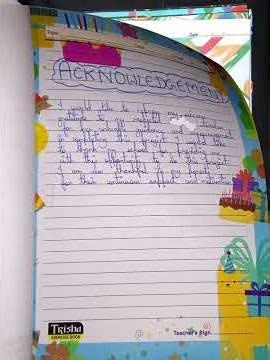 ACKNOWLEDGEMENT
I would like to my sincere
gratitude to my respected
for his valuable guidance and encouragement
in completing this project. I would like
to thank my school for providing
all the opportunity to do this project.
I am also thankful to my parents
for their continuous support and motivation.
Trisha
EXERCISE BOOK
Teacher's Sign.